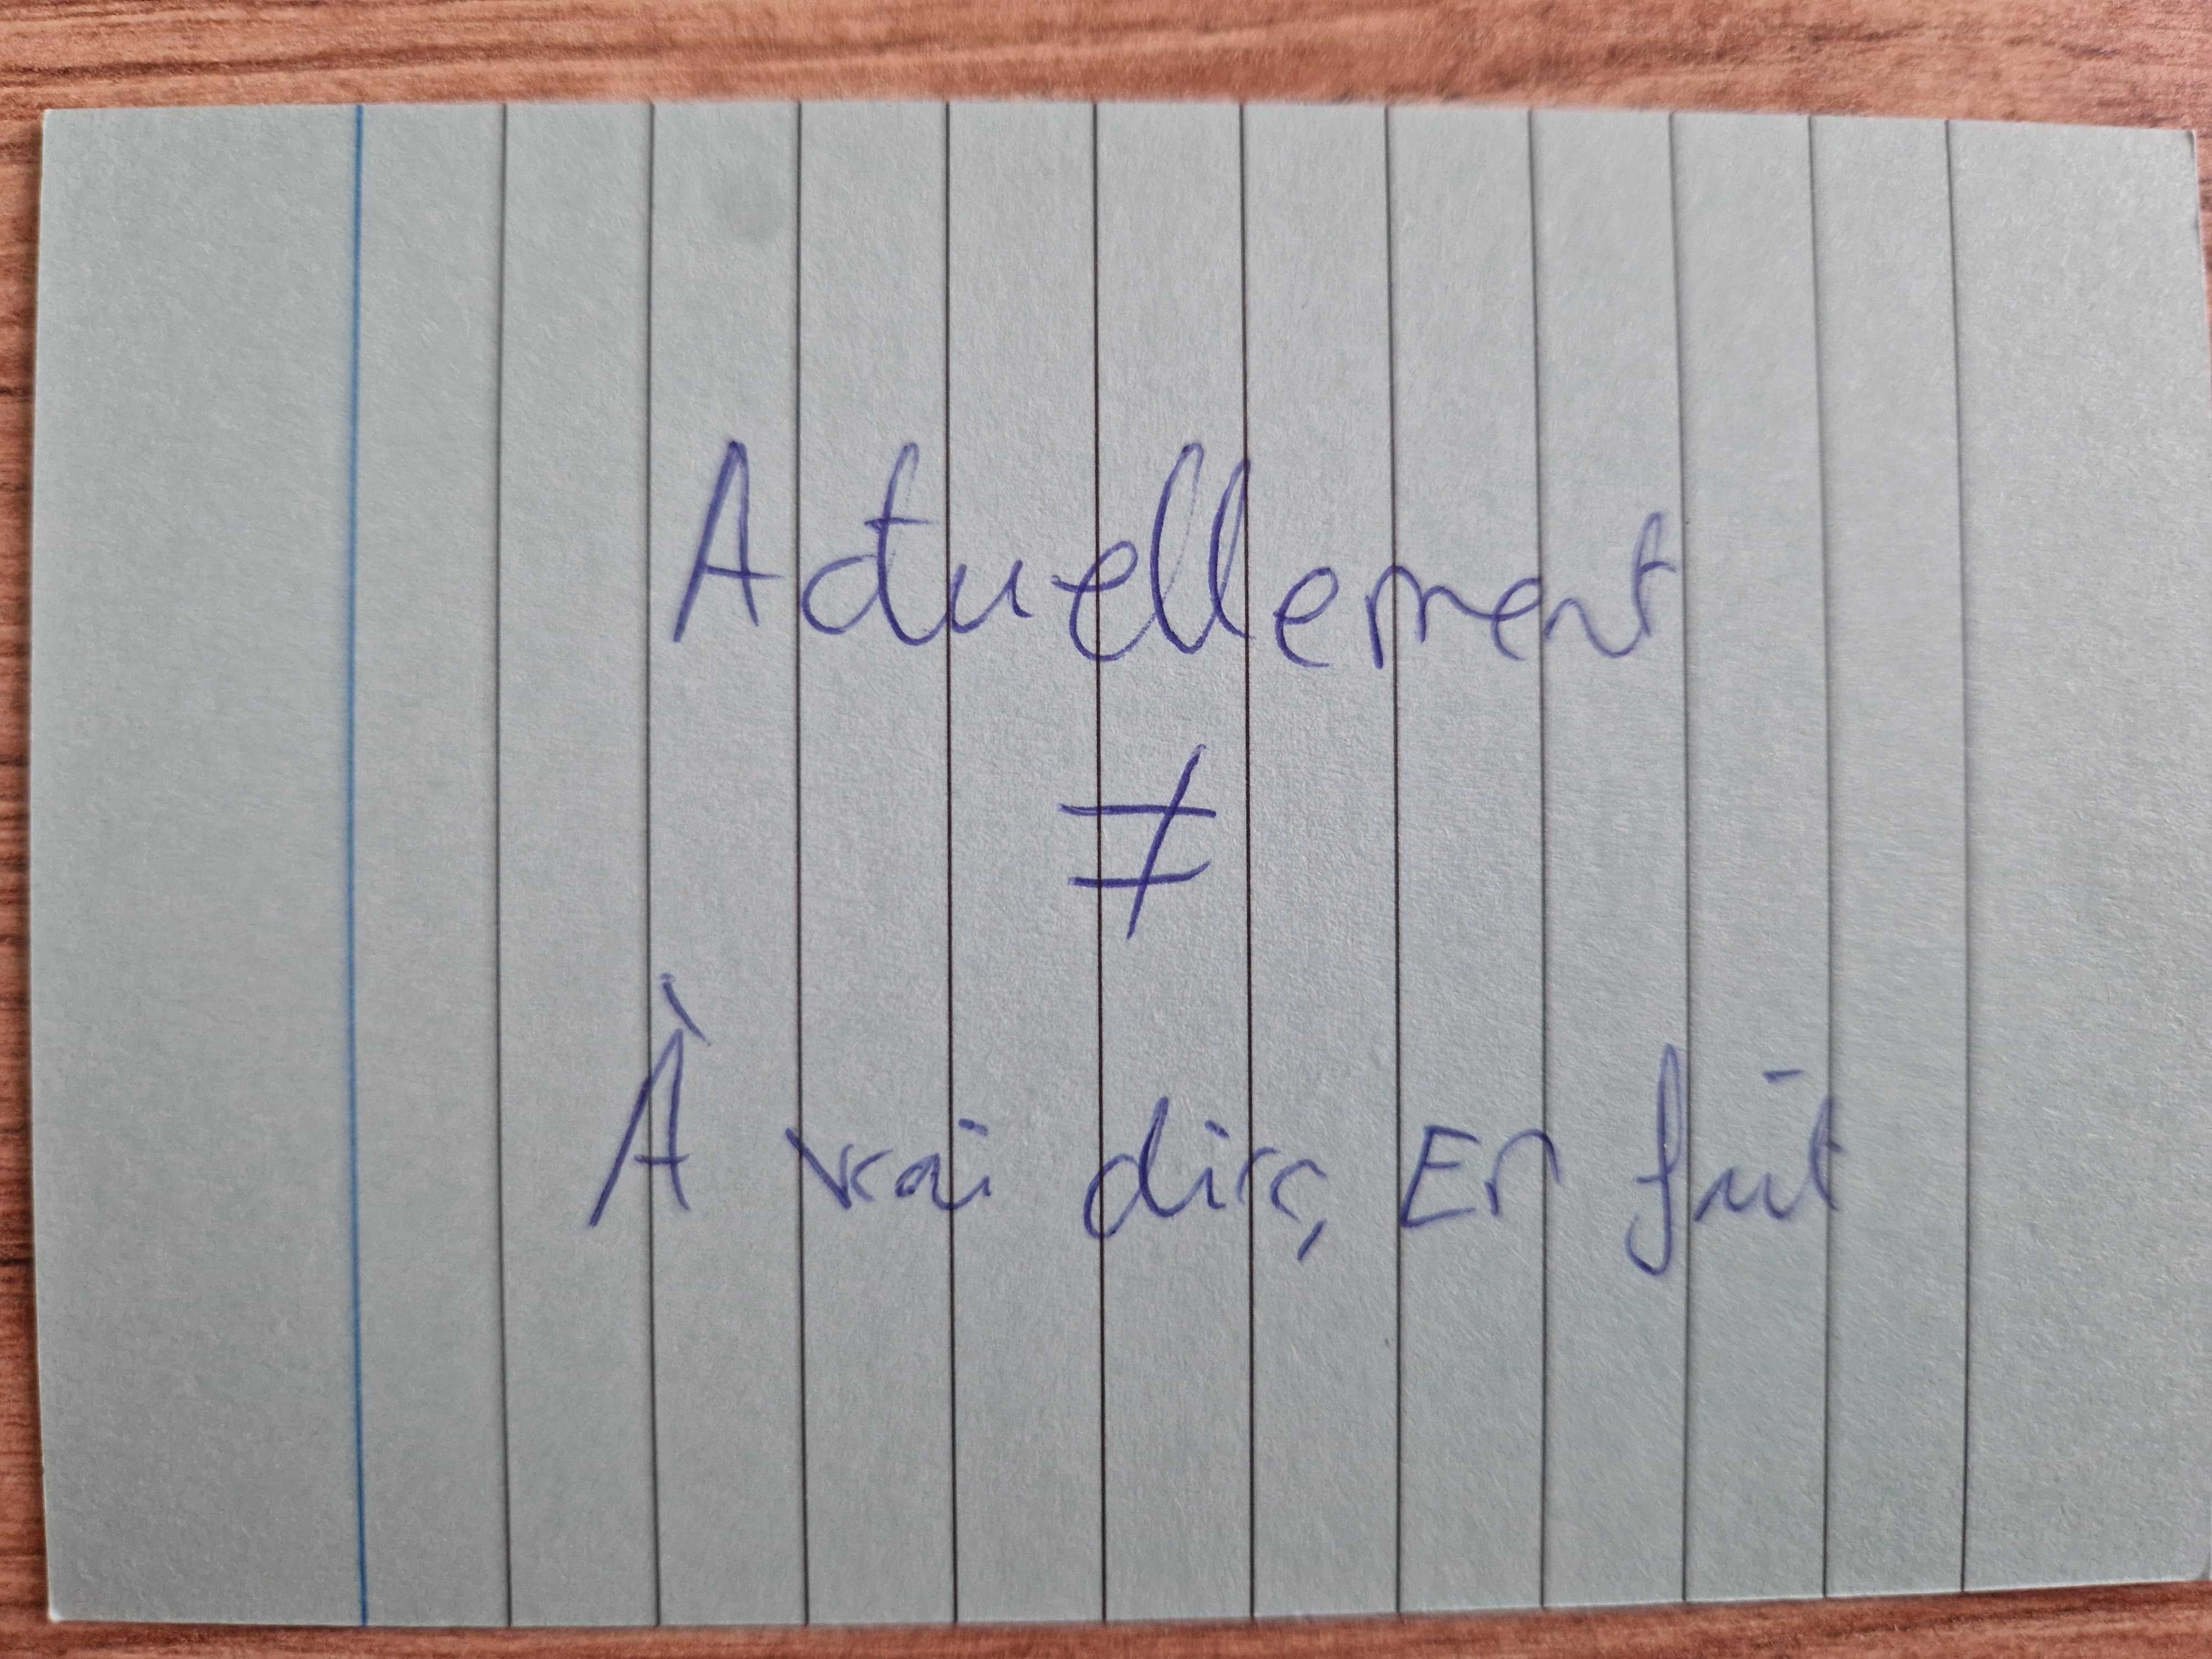 Actuellement
≠
À vrai dire, En fait